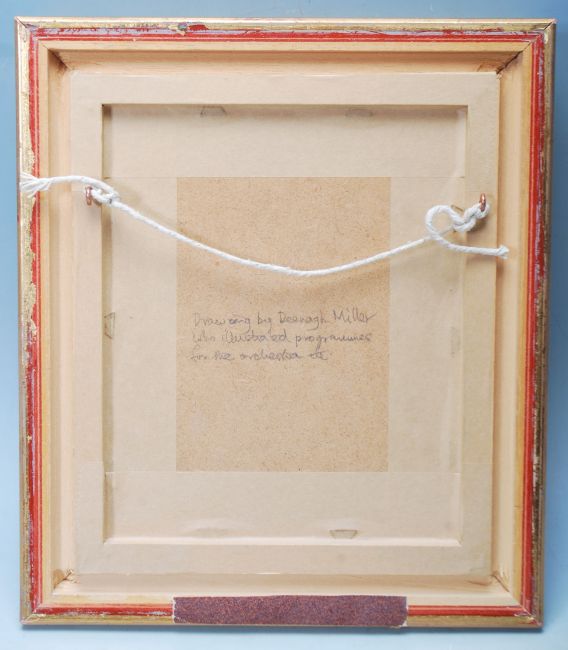 Drawing by Deenagh Miller
who illustrated programmes
for the orchestra etc.